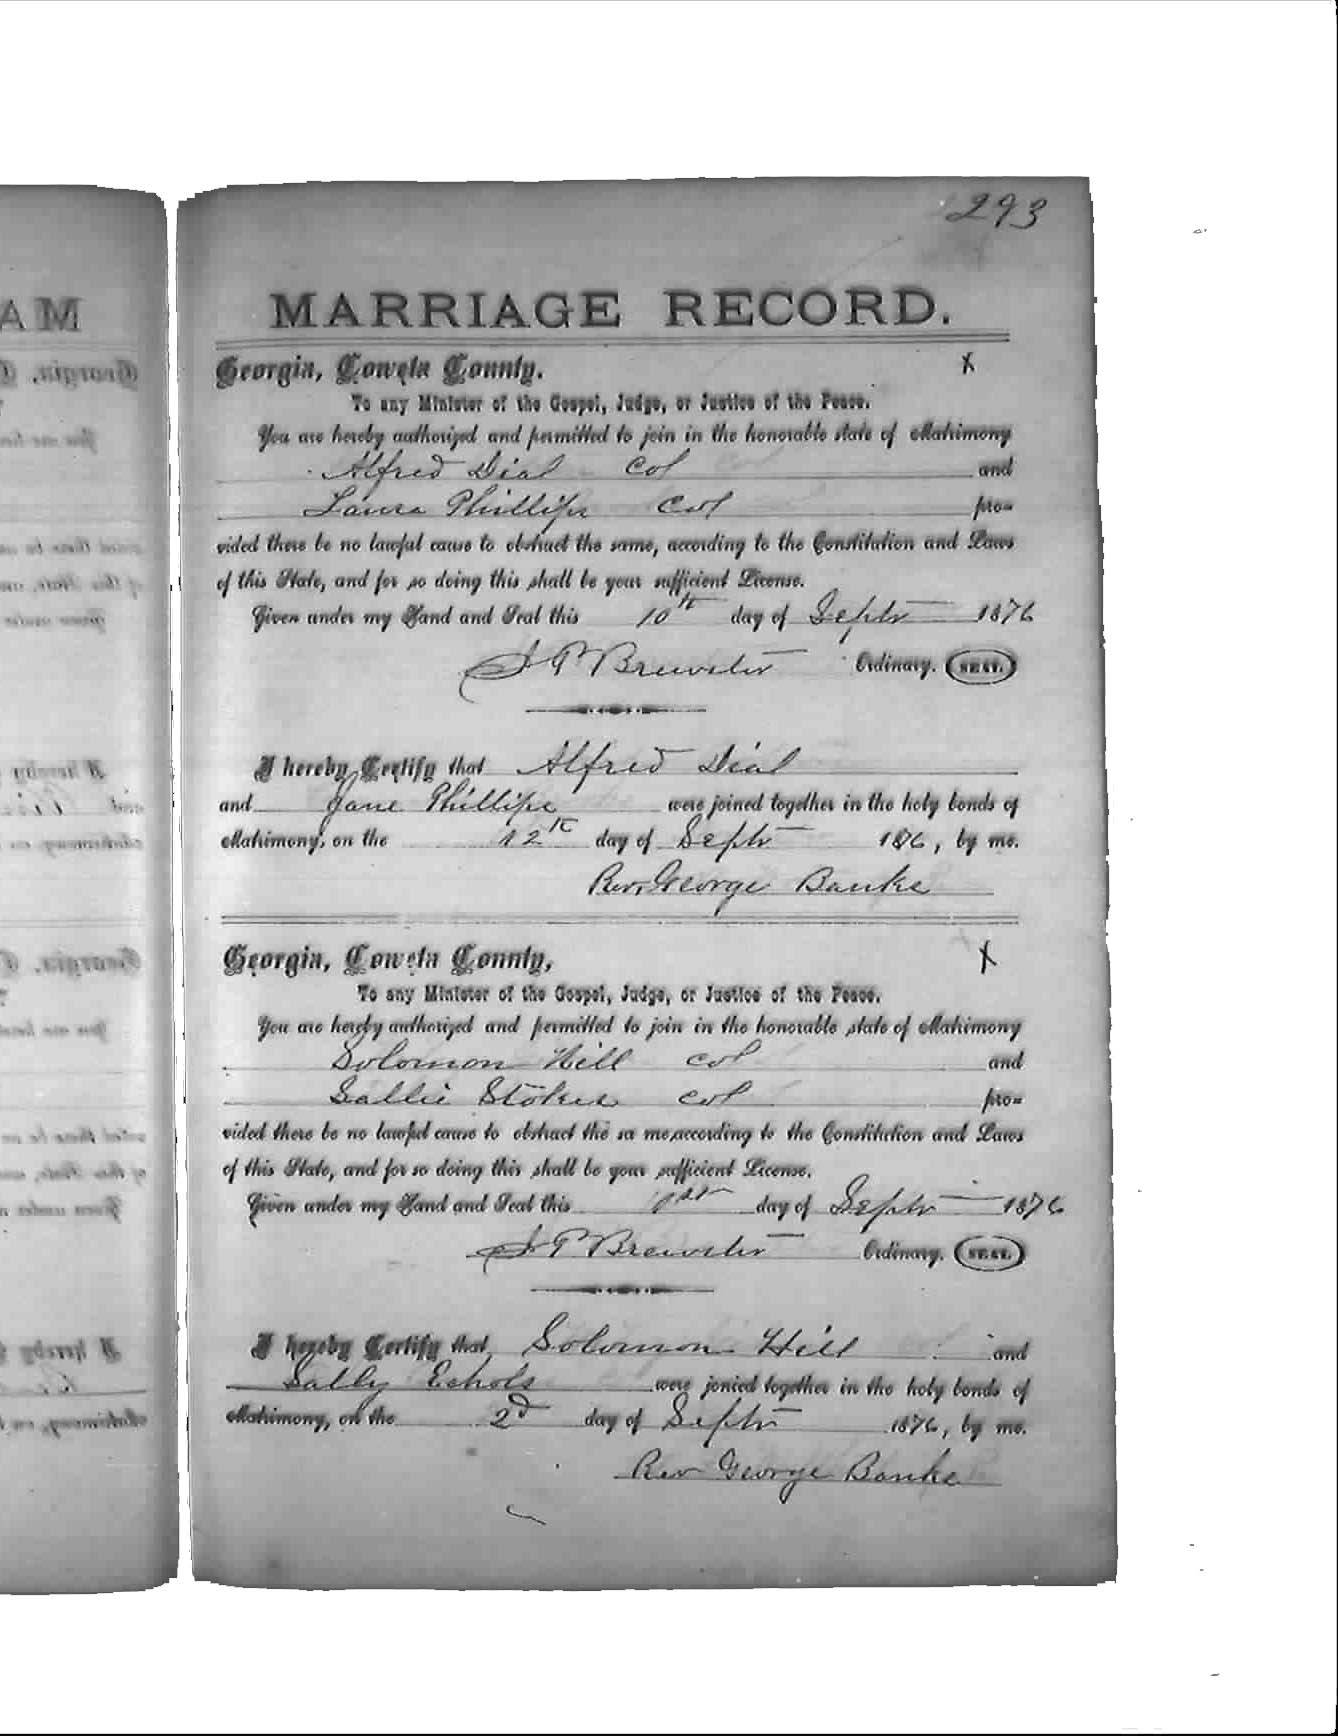 293
MARRIAGE RECORD.
Georgia, Coweta County. X
To any Minister of the Gospel, Judge, or Justice of the Peace.
You are hereby authorized and permitted to join in the honorable state of Matrimony
Alfred Dial Col and
Laura Phillips Col pro=
vided there be no lawful cause to obstruct the same, according to the Constitution and Laws
of this State, and for so doing this shall be your sufficient License.
Given under my Hand and Seal this 10th day of Septr 1876
J P Brewster Ordinary. SEAL.
I hereby Certify that Alfred Dial
and Jane Phillips were joined together in the holy bonds of
Matrimony, on the 12th day of Septr 1876, by me.
Rev. George Banks
Georgia, Coweta County, X
To any Minister of the Gospel, Judge, or Justice of the Peace.
You are hereby authorized and permitted to join in the honorable state of Matrimony
Solomon Hill col and
Sallie Stokes col pro=
vided there be no lawful cause to obstruct the sa me,according to the Constitution and Laws
of this State, and for so doing this shall be your sufficient License.
Given under my Hand and Seal this 1st day of Septr 1876
J P Brewster Ordinary. SEAL.
I hereby Certify that Solomon Hill and
Sally Echols were jonied together in the holy bonds of
Matrimony, on the 2d day of Septr 1876, by me.
Rev George Banks